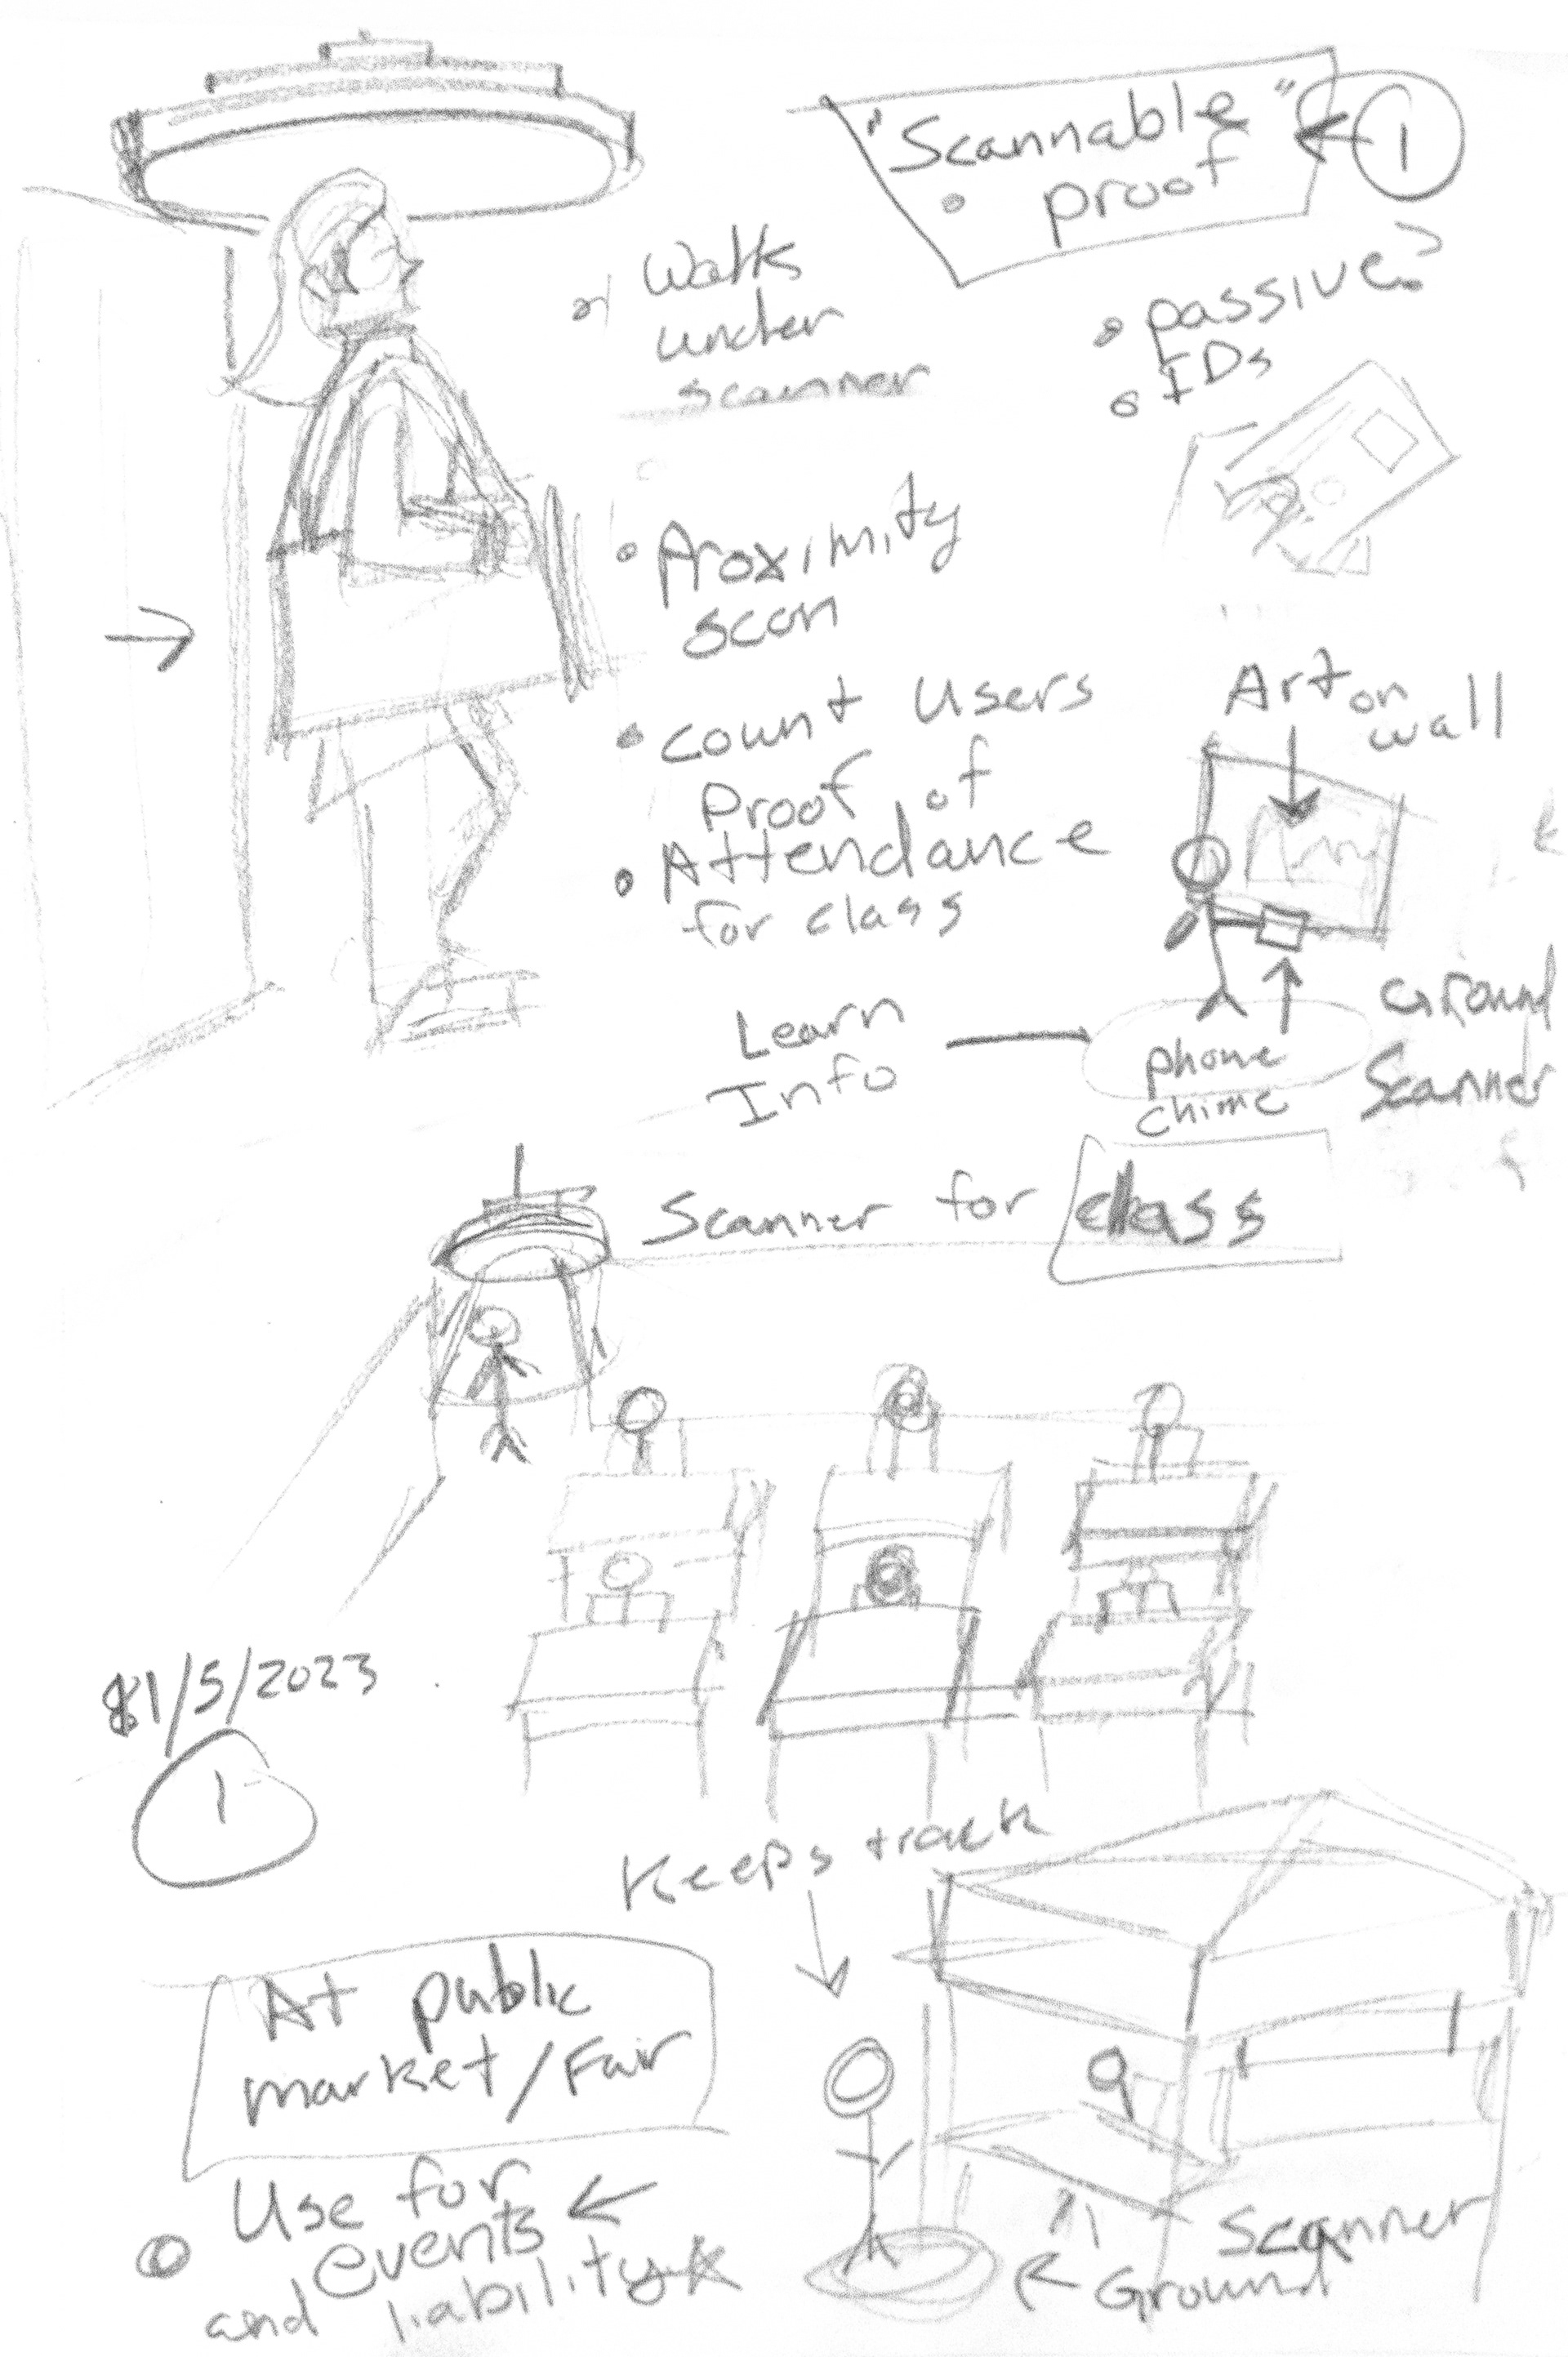 "Scannable"
proof
1
Walks
under
scanner
passive?
IDs
Proximity
scan
Count Users
Proof of
Attendance
for class
Art on
wall
Learn
Info
phone
chime
Ground
Scanner
Scanner for class
1/5/2023
1
Keeps track
At public
market/Fair
Use for
events
and liability
Scanner
Ground